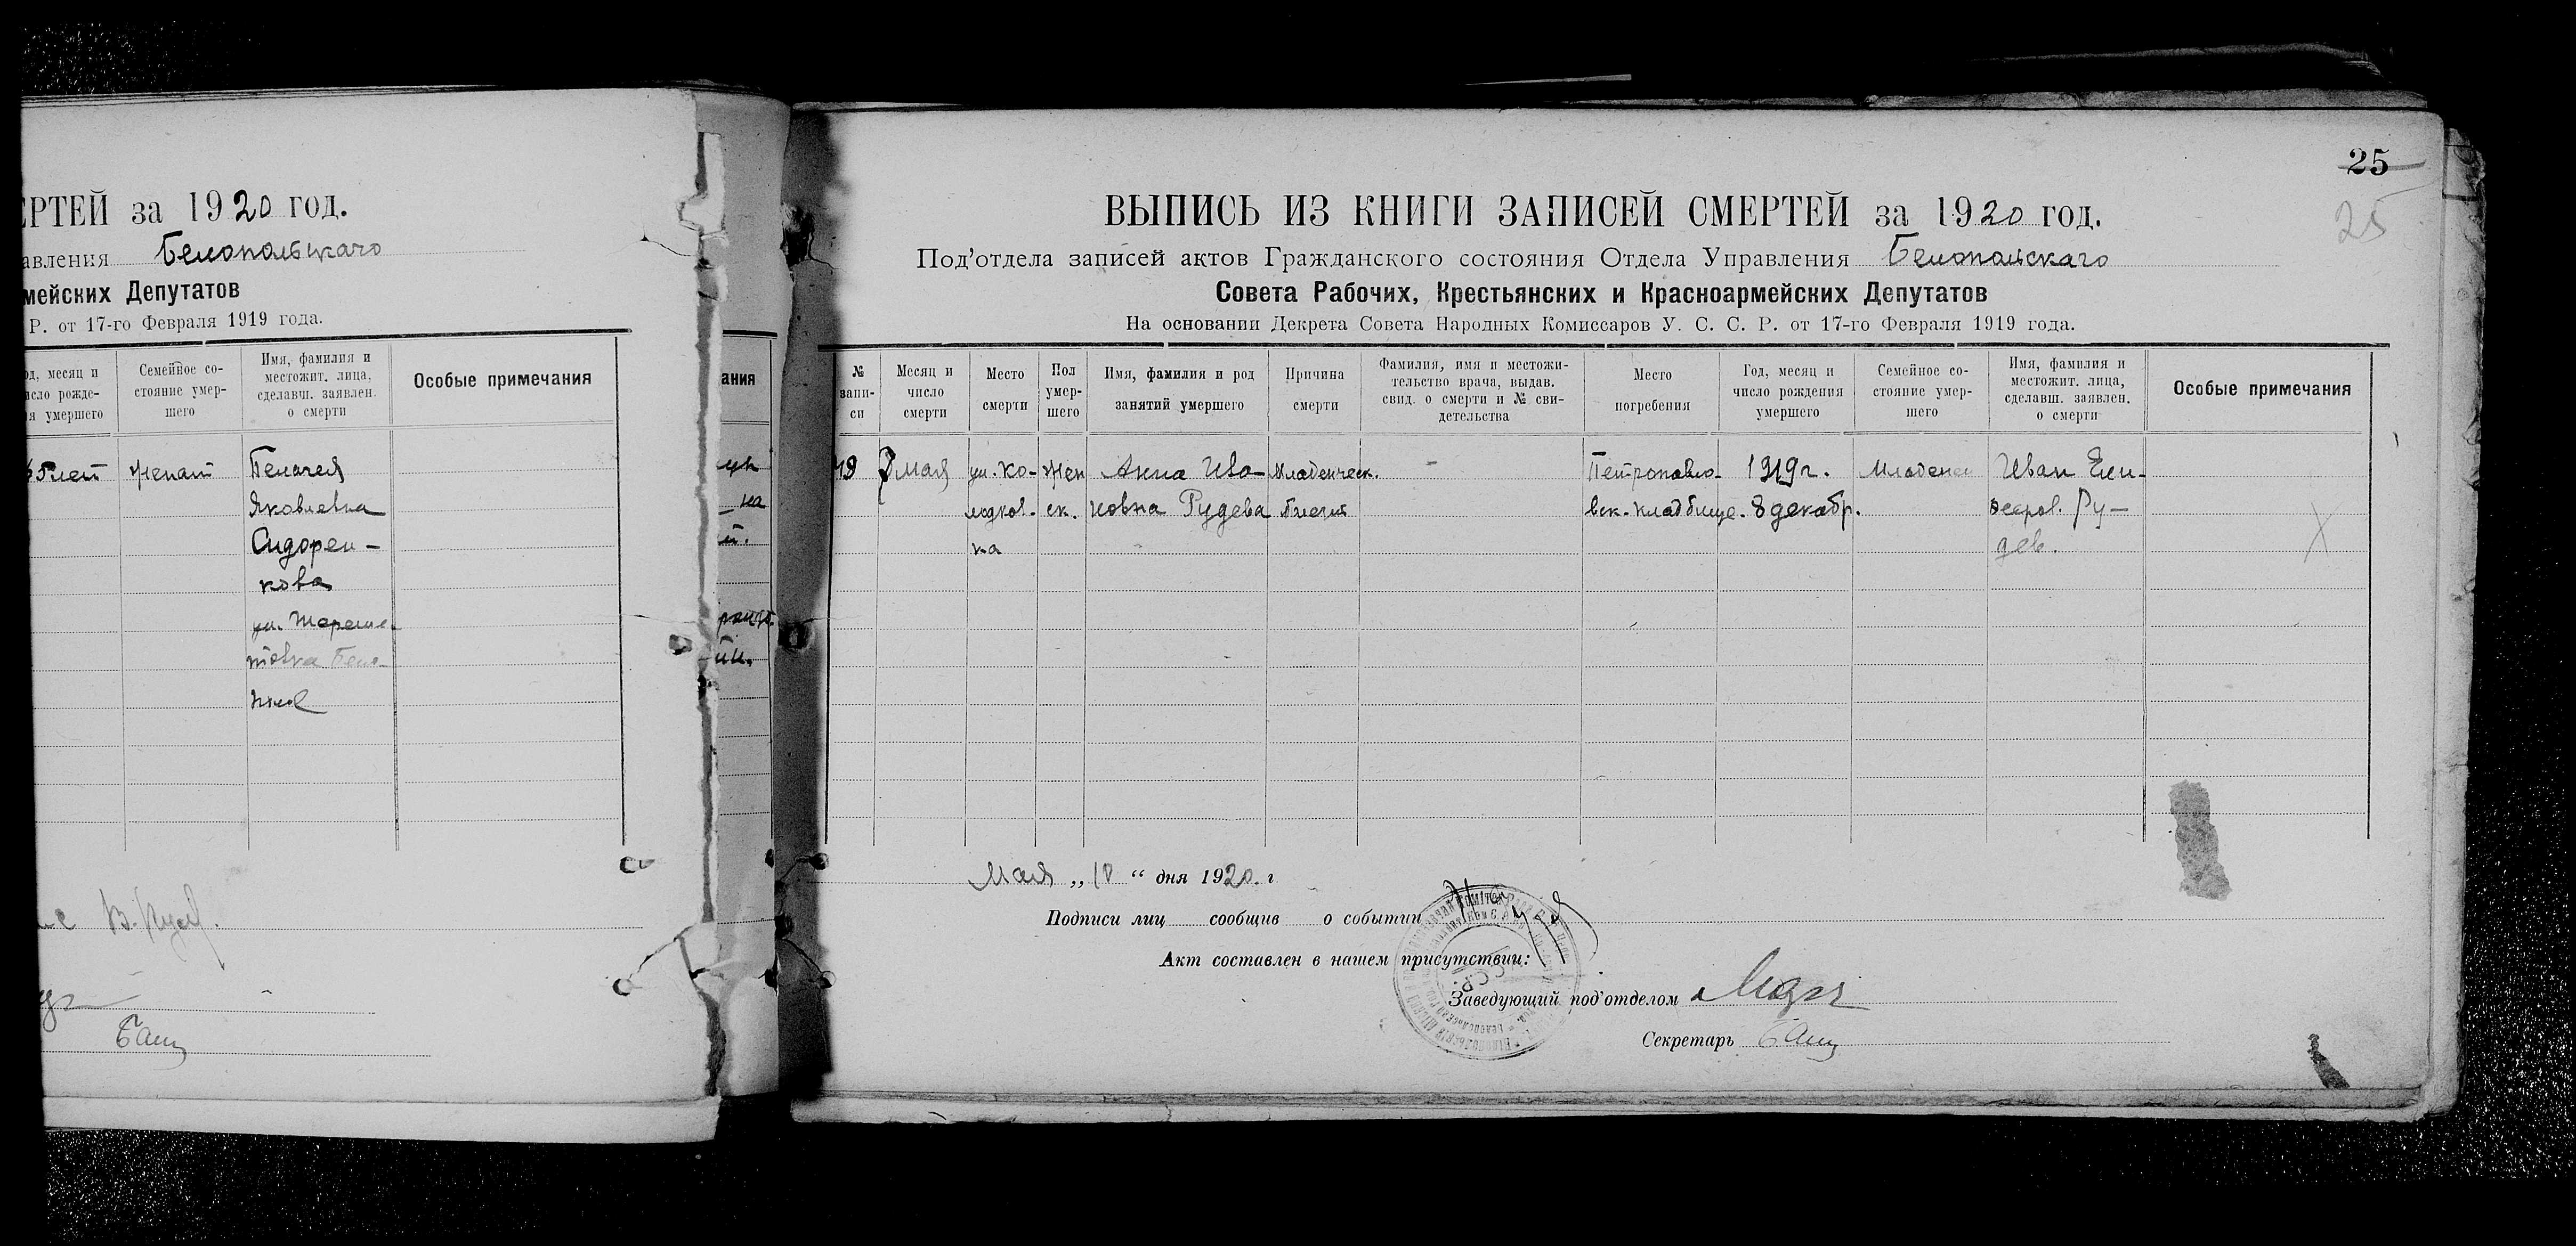 ЕРТЕЙ за 1920 год.
авления Белопольскаго
мейских Депутатов
Р. от 17-го Февраля 1919 года.
од, месяц и
исло рожде-
я умершего
Семейное со-
стояние умер-
шего
Имя, фамилия и
местожит. лица,
сделавш. заявлен.
о смерти
Особые примечания
лет женат Пелагея
Яковлевна
Сидорен-
кова
ания
25
25
ВЫПИСЬ ИЗ КНИГИ ЗАПИСЕЙ СМЕРТЕЙ за 1920 год.
Под'отдела записей актов Гражданского состояния Отдела Управления Белопольскаго
Совета Рабочих, Крестьянских и Красноармейских Депутатов
На основании Декрета Совета Народных Комиссаров У. С. С. Р. от 17-го Февраля 1919 года.
№
запи-
си
Месяц и
число
смерти
Место
смерти
Пол
умер-
шего
Имя, фамилия и род
занятий умершего
Причина
смерти
Фамилия, имя и местожи-
тельство врача, выдав.
свид. о смерти и № сви-
детельства
Место
погребения
Год, месяц и
число рождения
умершего
Семейное со-
стояние умер-
шего
Имя, фамилия и
местожит. лица,
сделавш. заявлен.
о смерти
Особые примечания
мая ул. Ко- Жен Анна Ива- Младенческ. - Петропавло- 1919 г. Младенец Иван
ск. новна Рудева вск. кладбище. 8 декабр. Ру-
ка дев.
Мая „ 10 “ дня 1920 г
Подписи лиц сообщив о событии
Акт составлен в нашем присутствии:
Заведующий под'отделом
Секретарь